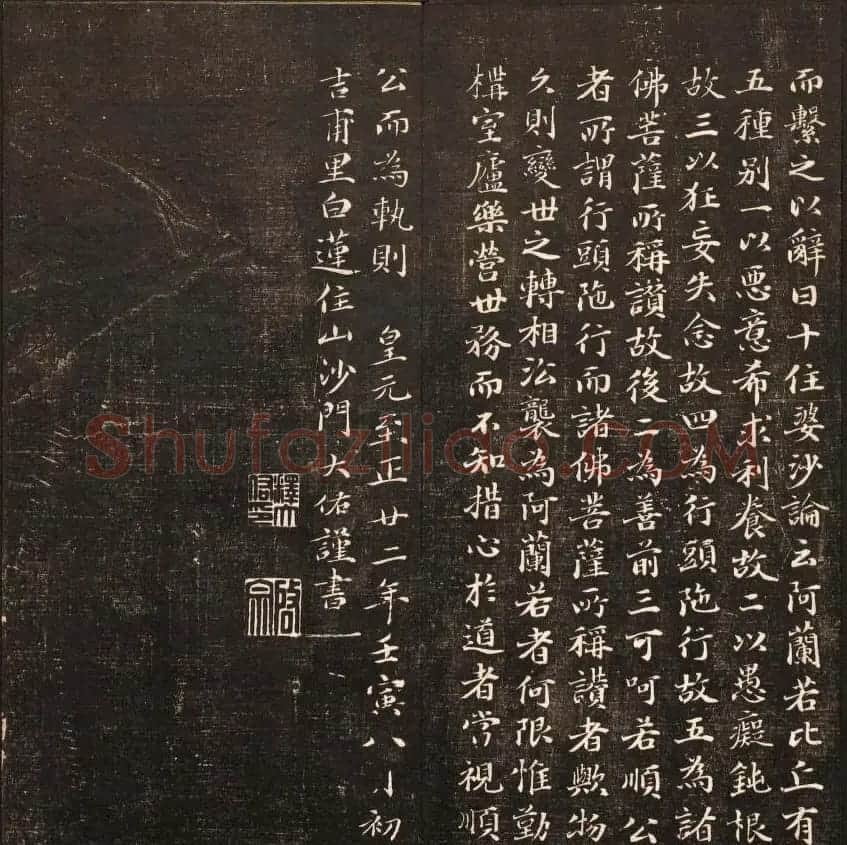 而繫之以辭曰十住婆沙論云阿蘭若比丘有
五種別一以惡意希求利養故二以愚癡鈍根
故三以狂妄失念故四為行頭陁行故五為諸
佛菩薩所稱讚故後二為善前三可呵若順公
者所謂行頭陁行而諸佛菩薩所稱讚者歟物
久則變世之轉相沿襲為阿蘭若者何限惟勤
構室廬樂營世務而不知措心於道者嘗視順
公而為軌則 皇元至正廿二年壬寅八月初
吉甫里白蓮住山沙門大佑謹書
Shufaziliao.COM